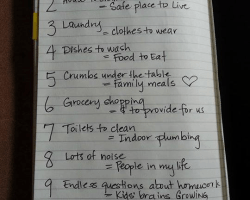 2
= Safe place to Live
3 Laundry
= clothes to wear
4 Dishes to wash
= Food to Eat
5 Crumbs under the table
= family meals ♡
6 Grocery shopping
= $ to provide for us
7 Toilets to clean
= Indoor plumbing
8 Lots of noise
= People in my life
9 Endless questions about homework
= Kids' brains Growing